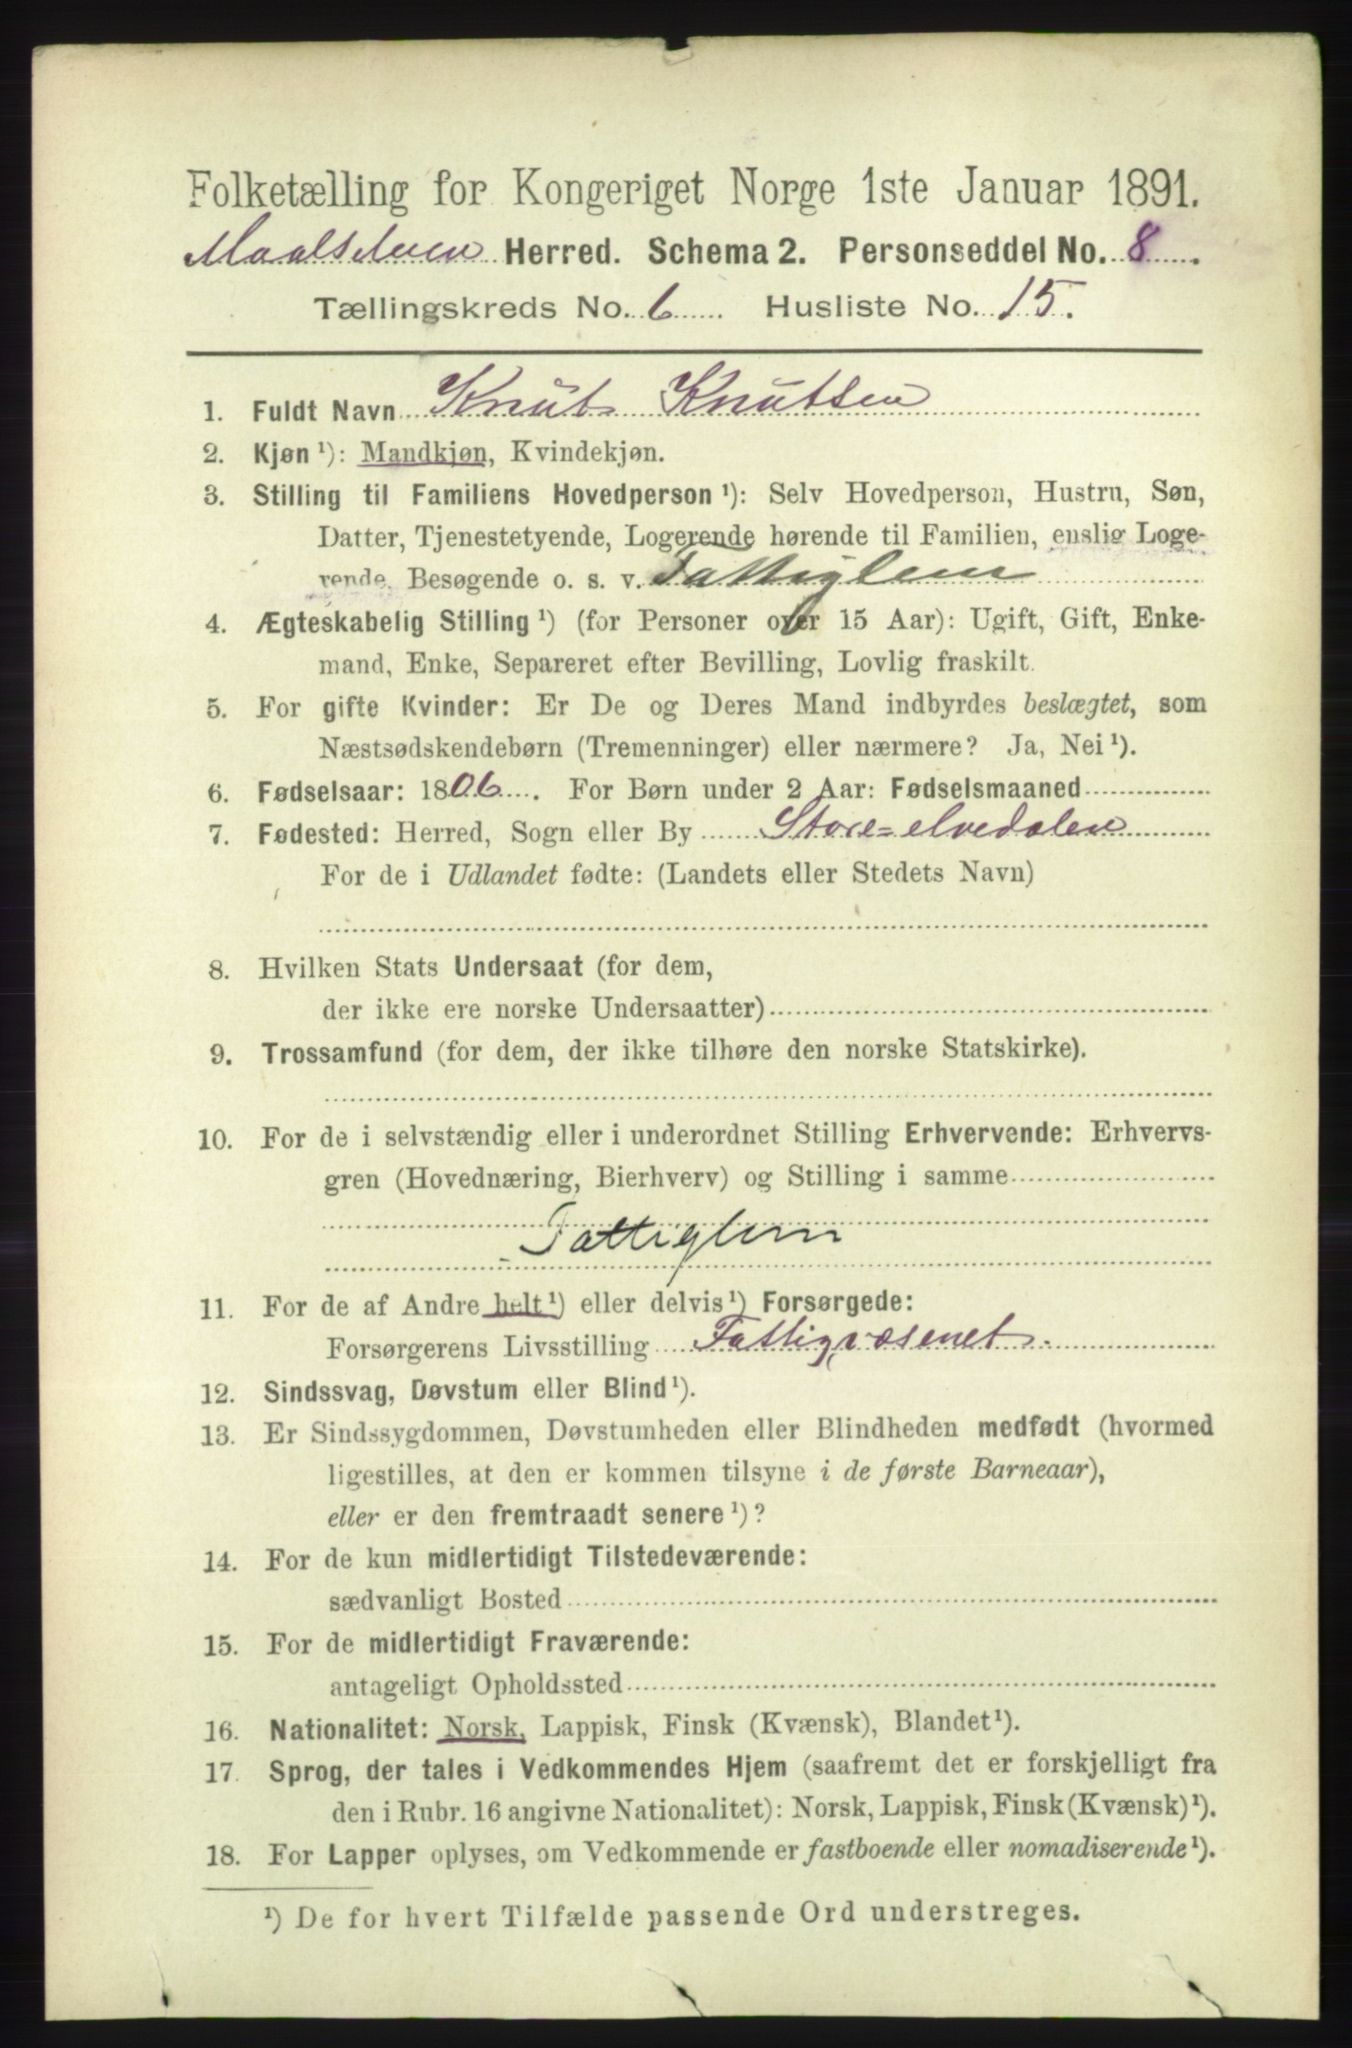 Folketælling for Kongeriget Norge 1ste Januar 1891.
Maalselven Herred. Schema 2. Personseddel No. 8.
Tællingskreds No. 6 Husliste No. 15.
1. Fuldt Navn Knut Knutsen
2. Kjøn¹): Mandkjøn, Kvindekjøn.
3. Stilling til Familiens Hovedperson¹): Selv Hovedperson, Hustru, Søn,
Datter, Tjenestetyende, Logerende hørende til Familien, enslig Loge-
rende, Besøgende o. s. v. Fattiglem
4. Ægteskabelig Stilling¹) (for Personer over 15 Aar): Ugift, Gift, Enke-
mand, Enke, Separeret efter Bevilling, Lovlig fraskilt.
5. For gifte Kvinder: Er De og Deres Mand indbyrdes beslægtet, som
Næstsødskendebørn (Tremenninger) eller nærmere? Ja, Nei¹).
6. Fødselsaar: 1806. For Børn under 2 Aar: Fødselsmaaned
7. Fødested: Herred, Sogn eller By Store=elvedalen
For de i Udlandet fødte: (Landets eller Stedets Navn)
8. Hvilken Stats Undersaat (for dem,
der ikke ere norske Undersaatter)
9. Trossamfund (for dem, der ikke tilhøre den norske Statskirke).
10. For de i selvstændig eller i underordnet Stilling Erhvervende: Erhvervs-
gren (Hovednæring, Bierhverv) og Stilling i samme
Fattiglem
11. For de af Andre helt¹) eller delvis¹) Forsørgede:
Forsørgerens Livsstilling Fattigvæsenet.
12. Sindssvag, Døvstum eller Blind¹).
13. Er Sindssygdommen, Døvstumheden eller Blindheden medfødt (hvormed
ligestilles, at den er kommen tilsyne i de første Barneaar),
eller er den fremtraadt senere¹)?
14. For de kun midlertidigt Tilstedeværende:
sædvanligt Bosted
15. For de midlertidigt Fraværende:
antageligt Opholdssted
16. Nationalitet: Norsk, Lappisk, Finsk (Kvænsk), Blandet¹).
17. Sprog, der tales i Vedkommendes Hjem (saafremt det er forskjelligt fra
den i Rubr. 16 angivne Nationalitet): Norsk, Lappisk, Finsk (Kvænsk)¹).
18. For Lapper oplyses, om Vedkommende er fastboende eller nomadiserende¹).
¹) De for hvert Tilfælde passende Ord understreges.